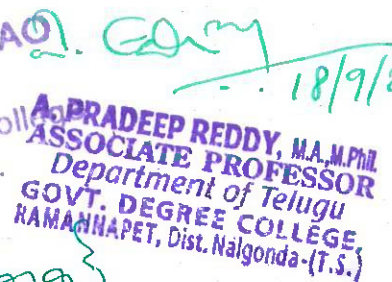 AO
18/9/
A. PRADEEP REDDY, M.A., M.Phil.
ASSOCIATE PROFESSOR
Department of Telugu
GOVT. DEGREE COLLEGE,
RAMANNAPET, Dist. Nalgonda-(T.S.)